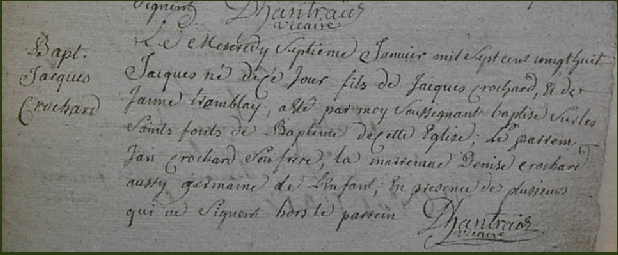 Signent Dhantraids
vicaire
Bapt.
Jacques
Crochard
Le Mercredy Septieme Janvier mil Sept cent vingt huit
Jacques né de ce Jour fils de Jacques Crochard, & de
Janne tramblay, a été par moy Soussignant baptisé Sur les
Saints fonts de Baptême de cette Eglise; Le parrein
Jan Crochard Son frere, la marrenne Denise Crochard
aussy germaine de L'enfant, En presence de plusieurs
qui ne Signent hors le parrein
Dhantraids
vicaire